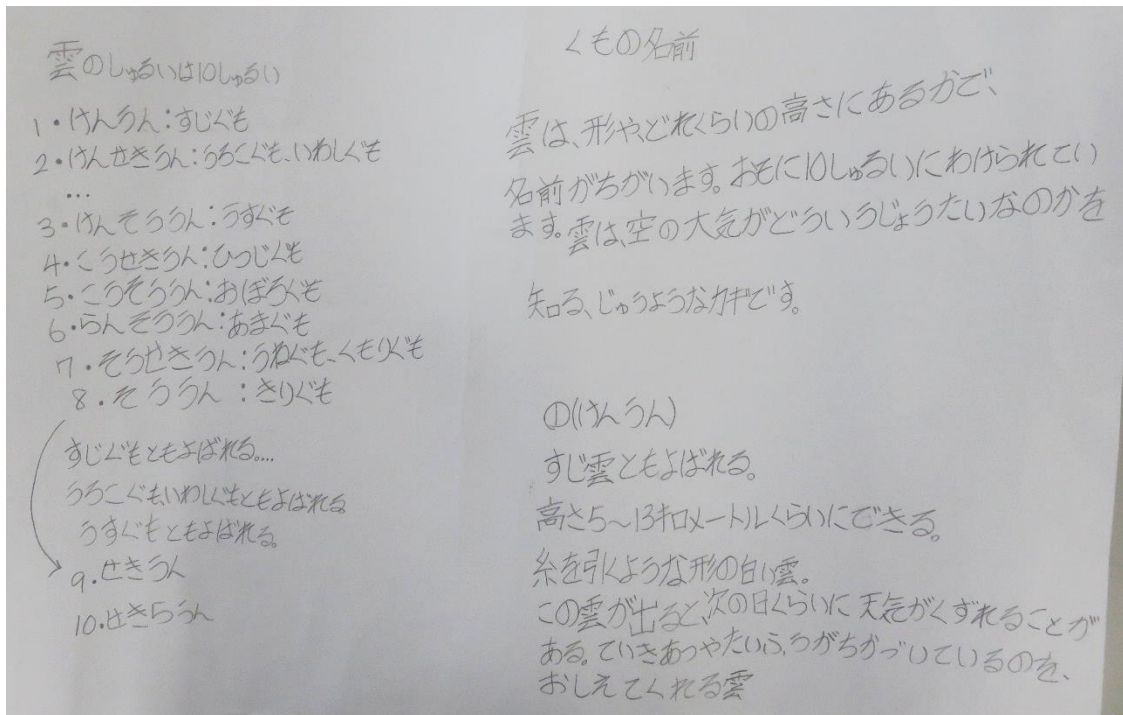 雲のしゅるいは10しゅるい
1・けんうん:すじぐも
2・けんせきうん:うろこぐも、いわしぐも
...
3・けんそううん:うすぐも
4・こうせきうん:ひつじぐも
5・こうそううん:おぼろぐも
6・らんそううん:あまぐも
7・そうせきうん:うねぐも、くもりぐも
8.そううん:きりぐも
すじぐもともよばれる....
うろこぐも、いわしぐもともよばれる
うすぐもともよばれる。
9.せきうん
10.せきらうん
くもの名前
雲は、形や、どれくらいの高さにあるかで、
名前がちがいます。おもに10しゅるいにわけられてい
ます。雲は、空の大気がどういうじょうたいなのかを
知る、じゅうようなカギです。
①(けんうん)
すじ雲ともよばれる。
高さ5~13キロメートルくらいにできる。
糸を引くような形の白い雲。
この雲が出ると、次の日くらいに天気がくずれることが
ある。ていきあつやたいふうがちかづいているのを、
おしえてくれる雲